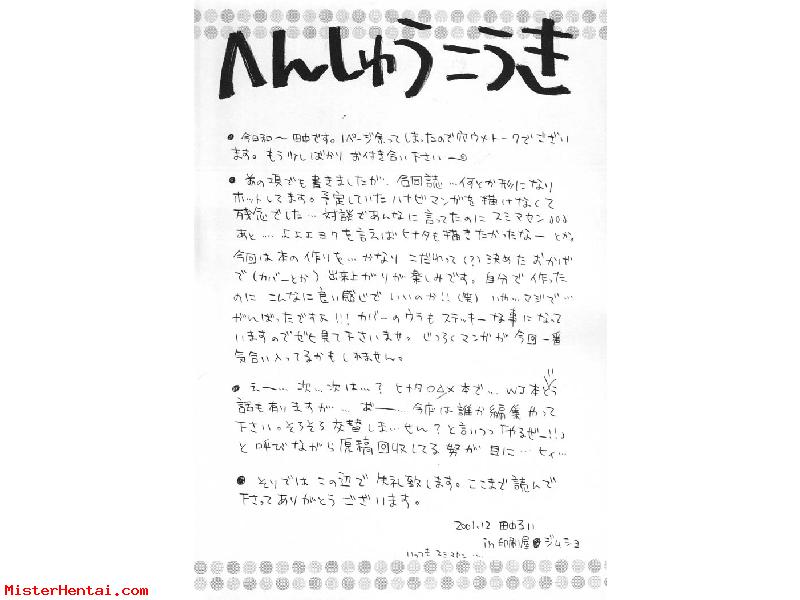 へんしゅうこうき
● 今日和〜田中です。1ページ余ってしまったので穴ウメトークでござい
ます。もう少しばかりお付き合い下さいー。
● 前の項でも書きましたが、合同誌…何とか形になり
ホットしてます。予定していたハナビマンガを描けなくて
残念でした…対談であんなに言ったのにスミマセン
あと…を言えばヒナタも描きたかったなーとか。
今回は本の作りを…かなりこだわって(?)決めたおかげ
で(カバーとか)出来上がりが楽しみです。自分で作った
のにこんなに良い感じでいいのか!!(笑)いやッマジで…
がんばったですよ!!!カバーのウラもステッキーな事になって
いますのでぜひ見て下さいませ。じつろくマンガが今回一番
気合い入ってるかもしれません。
● えー…次…次は…?ヒナタ○△×本で…WJ本とう
話も有りますが…あー…今度は誰か編集やって
下さい。そろそろ交替しませんせん?と言いつつ「やるぜー!!」
と呼びながら原稿回収してる努が目に…ヒィ…
● それではこの辺で失礼致します。ここまで読んで
下さってありがとうございます。
2001.12 田中るい
in 印刷屋●ジムショ
いつもスミマセン…
MisterHentai.com
MisterHentai.com